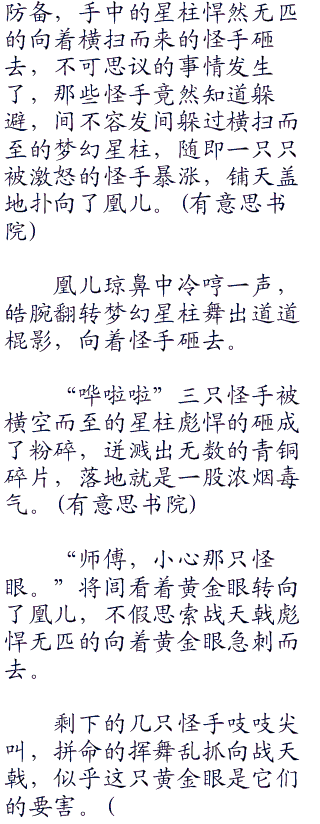 防备，手中的星柱悍然无匹
的向着横扫而来的怪手砸
去，不可思议的事情发生
了，那些怪手竟然知道躲
避，间不容发间躲过横扫而
至的梦幻星柱，随即一只只
被激怒的怪手暴涨，铺天盖
地扑向了凰儿。(有意思书
院)
凰儿琼鼻中冷哼一声，
皓腕翻转梦幻星柱舞出道道
棍影，向着怪手砸去。
“哗啦啦”三只怪手被
横空而至的星柱彪悍的砸成
了粉碎，迸溅出无数的青铜
碎片，落地就是一股浓烟毒
气。(有意思书院)
“师傅，小心那只怪
眼。”将闾看着黄金眼转向
了凰儿，不假思索战天戟彪
悍无匹的向着黄金眼急刺而
去。
剩下的几只怪手吱吱尖
叫，拼命的挥舞乱抓向战天
戟，似乎这只黄金眼是它们
的要害。(